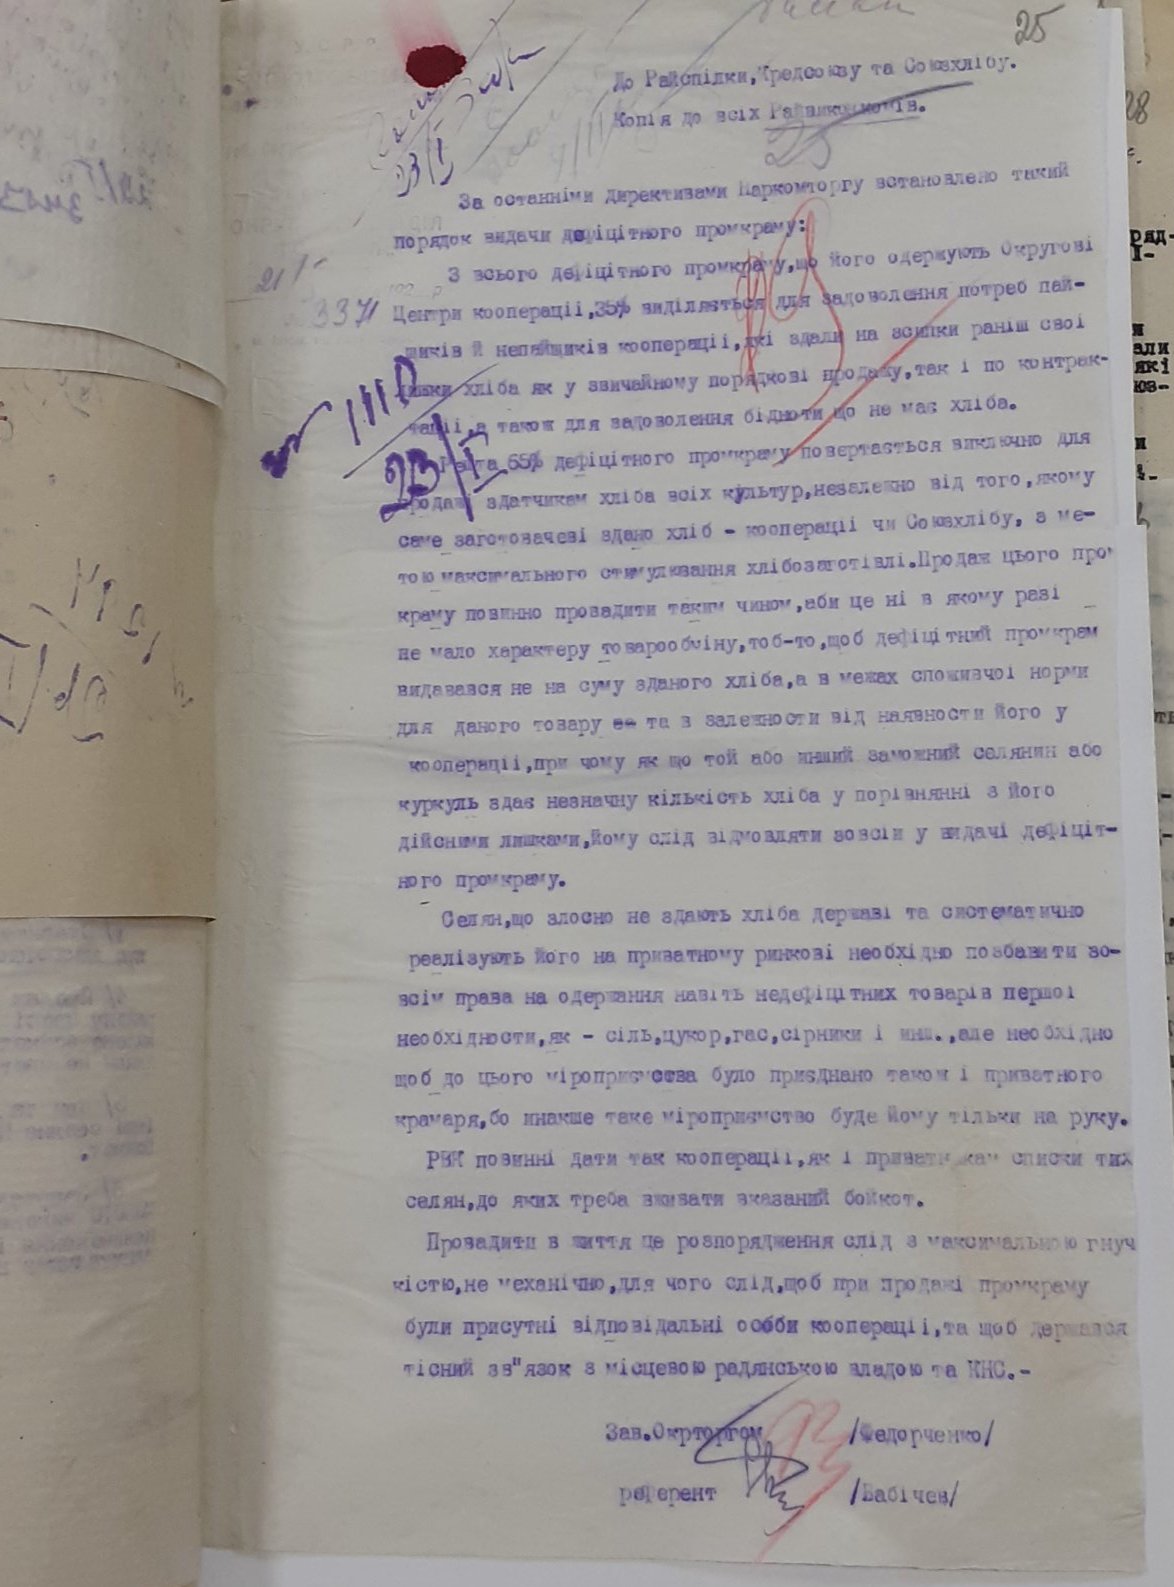 25
До Райспілки, Кредсоюзу та Союзхлібу.
Копія до всіх Райвиконкомів.
25
23/I
За останніми директивами Наркомторгу встановлено такий
порядок видачи дефіцітного промкраму:
З всього дефіцітного промкраму,що його одержують Округові
Центри кооперації,35% виділяється для задоволення потреб пай-
щиків й непайщиків кооперації,які здали на зсипки раніш свої
лишки хліба як у звичайному порядкові продажу,так і по контрак-
тації,а також для задоволення бідноти що не має хліба.
Решта 65% дефіцітного промкраму повертається виключно для
продажі здатчикам хліба всіх культур,незалежно від того,якому
саме заготовачеві здано хліб - кооперації чи Союзхлібу, з ме-
тою максимального стимулювання хлібозаготівлі.Продаж цього пром
краму повинно провадити таким чином,аби це ні в якому разі
не мало характеру товарообміну,тоб-то,щоб дефіцітний промкрам
видавався не на суму зданого хліба,а в межах споживчої норми
для даного товару та в залежности від наявности його у
кооперації,при чому як що той або инший заможний селянин або
куркуль здає незначну кількість хліба у порівнянні з його
дійсними лишками,йому слід відмовляти зовсім у видачі дефіціт-
ного промкраму.
Селян,що злосно не здають хліба державі та систематично
реалізують його на приватному ринкові необхідно позбавити зо-
всім права на одержання навіть недефіцітних товарів першої
необхідности,як - сіль,цукор,гас,сірники і инш.,але необхідно
щоб до цього міроприємства було приєднано також і приватного
крамаря,бо инакше таке міроприємство буде йому тільки на руку.
РВК повинні дати так кооперації,як і приватникам списки тих
селян,до яких треба вживати вказаний бойкот.
Провадити в життя це розпорядження слід з максимальною гнуч
кістю,не механічно,для чого слід,щоб при продажі промкраму
були присутні відповідальні особи кооперації,та щоб держався
тісний зв"язок з місцевою радянською владою та КНС.-
Зав.Окрторгом /Федорченко/
референт /Бабічев/
21/I
3371
1110
23/I